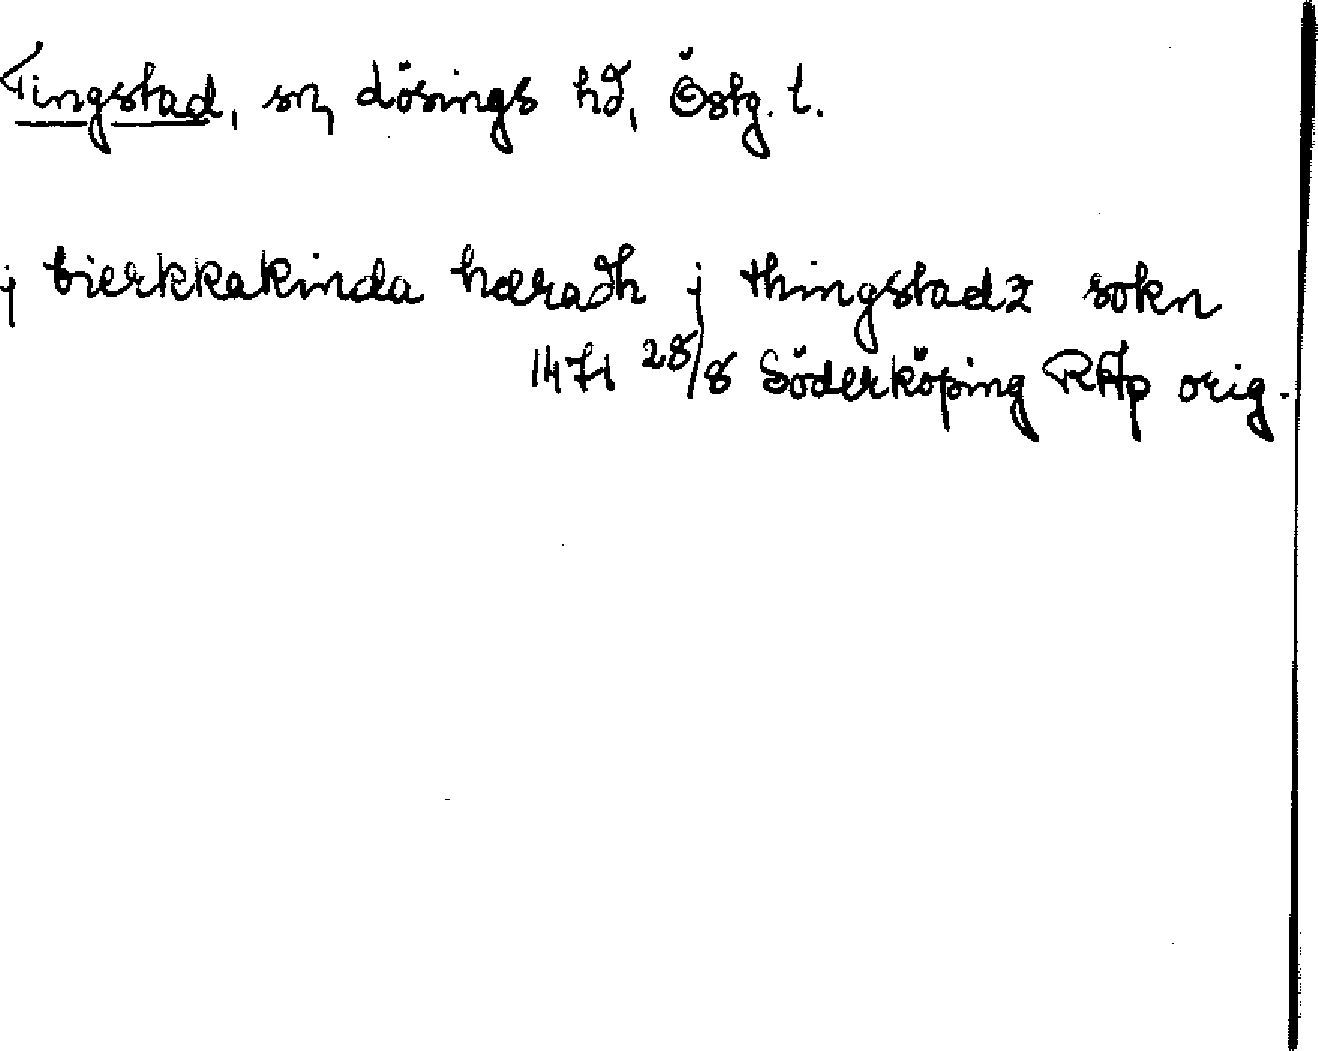 Tingstad, sn, Lösings hd, Östg. l.
j bierkkakinda hæradh j thingstadz sokn
1471 28/8 Söderköping RAp orig.